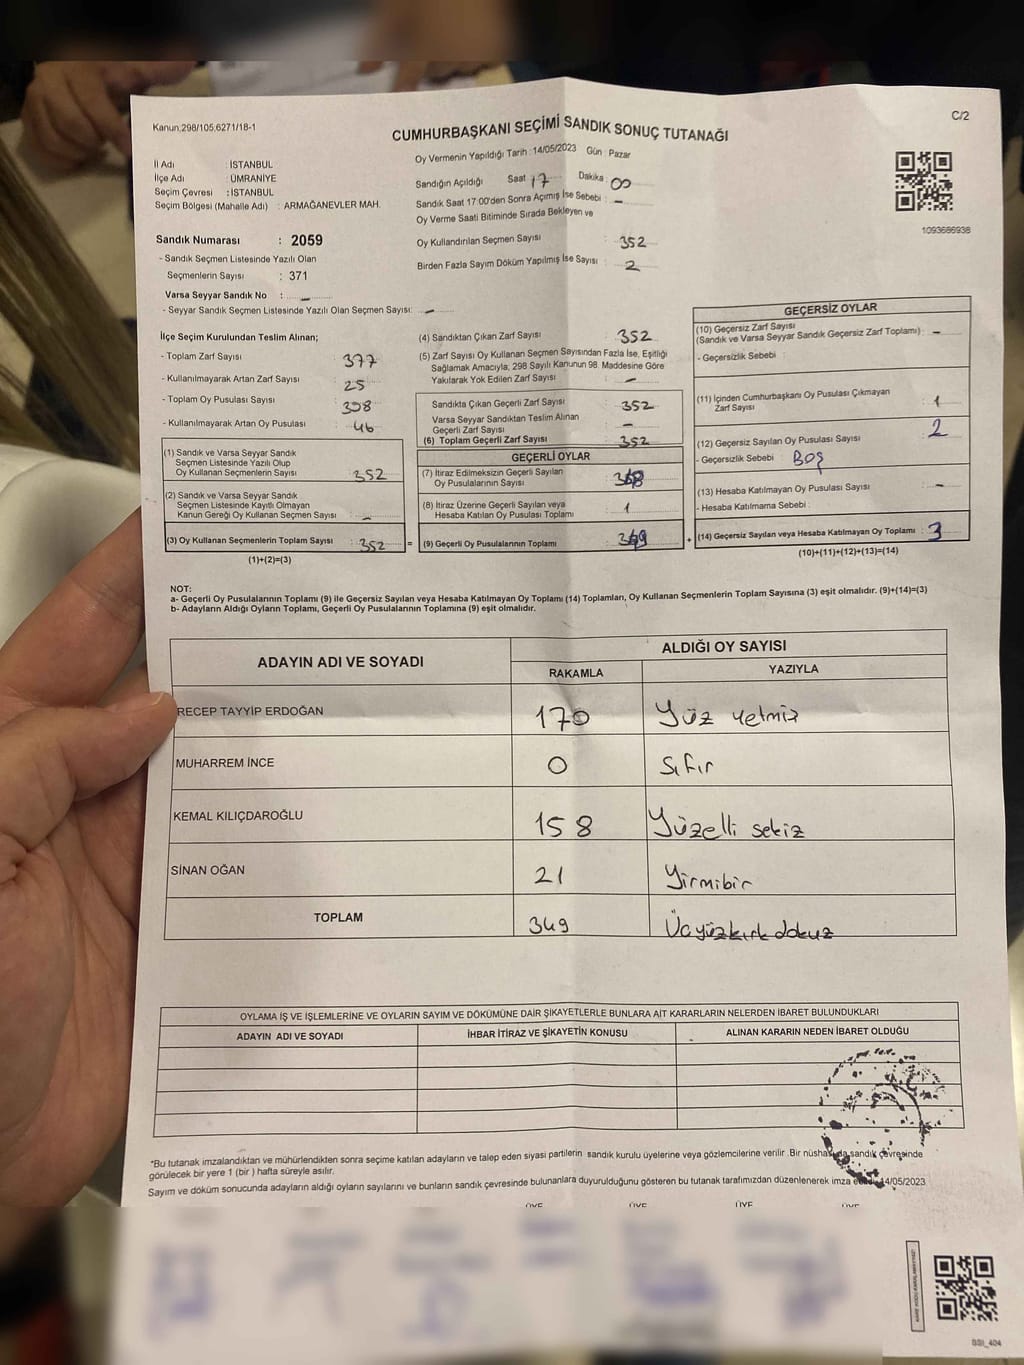 Kanun:298/105;6271/18-1
C/2
CUMHURBAŞKANI SEÇİMİ SANDIK SONUÇ TUTANAĞI
İl Adı : İSTANBUL
İlçe Adı : ÜMRANİYE
Seçim Çevresi : İSTANBUL
Seçim Bölgesi (Mahalle Adı) : ARMAĞANEVLER MAH.
Sandık Numarası : 2059
- Sandık Seçmen Listesinde Yazılı Olan
Seçmenlerin Sayısı : 371
Varsa Seyyar Sandık No : -
- Seyyar Sandık Seçmen Listesinde Yazılı Olan Seçmen Sayısı: -
Oy Vermenin Yapıldığı Tarih : 14/05/2023 Gün : Pazar
Sandığın Açıldığı Saat : 17 Dakika : 00
Sandık Saat 17:00'den Sonra Açımış İse Sebebi : -
Oy Verme Saati Bitiminde Sırada Bekleyen ve
Oy Kullandırılan Seçmen Sayısı : 352
Birden Fazla Sayım Döküm Yapılmış İse Sayısı : 2
1093686938
İlçe Seçim Kurulundan Teslim Alınan;
- Toplam Zarf Sayısı : 377
- Kullanılmayarak Artan Zarf Sayısı : 25
- Toplam Oy Pusulası Sayısı : 398
- Kullanılmayarak Artan Oy Pusulası : 46
(1) Sandık ve Varsa Seyyar Sandık
Seçmen Listesinde Yazılı Olup
Oy Kullanan Seçmenlerin Sayısı : 352
(2) Sandık ve Varsa Seyyar Sandık
Seçmen Listesinde Kayıtlı Olmayan
Kanun Gereği Oy Kullanan Seçmen Sayısı : -
(3) Oy Kullanan Seçmenlerin Toplam Sayısı : 352 =
(1)+(2)=(3)
(4) Sandıktan Çıkan Zarf Sayısı : 352
(5) Zarf Sayısı Oy Kullanan Seçmen Sayısından Fazla İse, Eşitliği
Sağlamak Amacıyla, 298 Sayılı Kanunun 98. Maddesine Göre
Yakılarak Yok Edilen Zarf Sayısı : -
Sandıkta Çıkan Geçerli Zarf Sayısı : 352
Varsa Seyyar Sandıktan Teslim Alınan
Geçerli Zarf Sayısı : -
(6) Toplam Geçerli Zarf Sayısı : 352
GEÇERLİ OYLAR
(7) İtiraz Edilmeksizin Geçerli Sayılan
Oy Pusulalarının Sayısı : 348
(8) İtiraz Üzerine Geçerli Sayılan veya
Hesaba Katılan Oy Pusulası Toplamı : 1
(9) Geçerli Oy Pusulalarının Toplamı : 349 +
GEÇERSİZ OYLAR
(10) Geçersiz Zarf Sayısı
(Sandık ve Varsa Seyyar Sandık Geçersiz Zarf Toplamı) : -
- Geçersizlik Sebebi :
(11) İçinden Cumhurbaşkanı Oy Pusulası Çıkmayan
Zarf Sayısı : 1
(12) Geçersiz Sayılan Oy Pusulası Sayısı : 2
- Geçersizlik Sebebi : Boş
(13) Hesaba Katılmayan Oy Pusulası Sayısı : -
- Hesaba Katılmama Sebebi :
(14) Geçersiz Sayılan veya Hesaba Katılmayan Oy Toplamı : 3
(10)+(11)+(12)+(13)=(14)
NOT:
a- Geçerli Oy Pusulalarının Toplamı (9) ile Geçersiz Sayılan veya Hesaba Katılmayan Oy Toplamı (14) Toplamları, Oy Kullanan Seçmenlerin Toplam Sayısına (3) eşit olmalıdır. (9)+(14)=(3)
b- Adayların Aldığı Oyların Toplamı, Geçerli Oy Pusulalarının Toplamına (9) eşit olmalıdır.
ADAYIN ADI VE SOYADI
ALDIĞI OY SAYISI
RAKAMLA YAZIYLA
RECEP TAYYİP ERDOĞAN 170 Yüz yetmiş
MUHARREM İNCE 0 Sıfır
KEMAL KILIÇDAROĞLU 158 Yüzelli sekiz
SİNAN OĞAN 21 Yirmibir
TOPLAM 349 Üçyüzkırk dokuz
OYLAMA İŞ VE İŞLEMLERİNE VE OYLARIN SAYIM VE DÖKÜMÜNE DAİR ŞİKAYETLERLE BUNLARA AİT KARARLARIN NELERDEN İBARET BULUNDUKLARI
ADAYIN ADI VE SOYADI İHBAR İTİRAZ VE ŞİKAYETİN KONUSU ALINAN KARARIN NEDEN İBARET OLDUĞU
*Bu tutanak imzalandıktan ve mühürlendikten sonra seçime katılan adayların ve talep eden siyasi partilerin sandık kurulu üyelerine veya gözlemcilerine verilir. Bir nüshası da sandık çevresinde
görülecek bir yere 1 (bir) hafta süreyle asılır.
Sayım ve döküm sonucunda adayların aldığı oyların sayılarını ve bunların sandık çevresinde bulunanlara duyurulduğunu gösteren bu tutanak tarafımızdan düzenlenerek imza 14/05/2023
ÜYE ÜYE ÜYE ÜYE
BSI_404